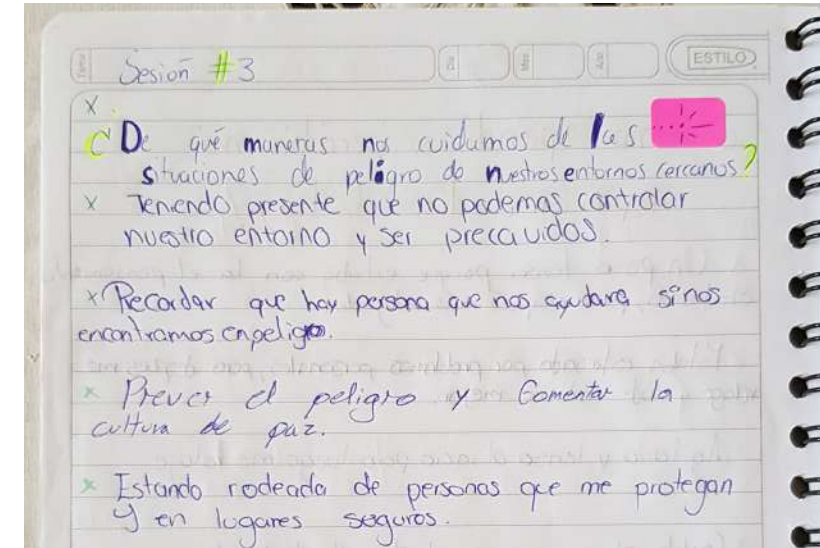 Sesión #3
Dia
Mes
Año
ESTILO
¿De qué maneras nos cuidamos de las
situaciones de peligro de nuestros entornos cercanos?
x Teniendo presente que no podemos controlar
nuestro entorno y ser precavidos.
x Recordar que hay persona que nos ayudara si nos
encontramos en peligro.
x Prever el peligro y Fomentar la
cultura de paz.
x Estando rodeada de personas que me protegan
y en lugares seguros.